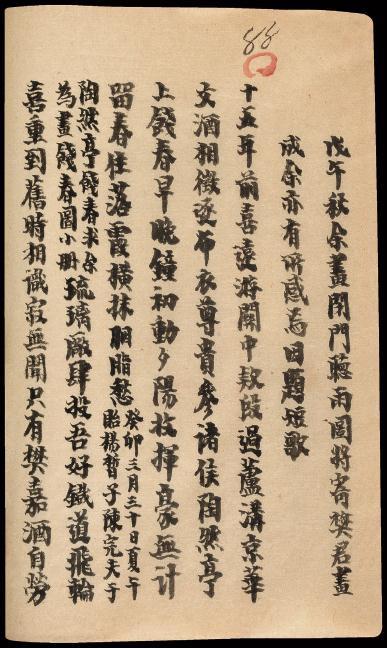 88
戊午秋余畫閉門聽雨圖將寄樊君畫
成余亦有所感為因題短歌
十五年前喜遠游關中款段過蘆溝京華
文酒相徵逐布衣尊貴參諸侯陶然亭
上餞春早晚鐘初動夕陽收揮豪無計
留春住落霞橫抹胭脂愁
癸卯三月三十日夏午
貽楊皙子陳完夫于
陶然亭餞春求余
為畫餞春圖小冊
琉璃廠肆投吾好鐵道飛輪
喜重到舊時相識寂無聞只有樊嘉酒自勞